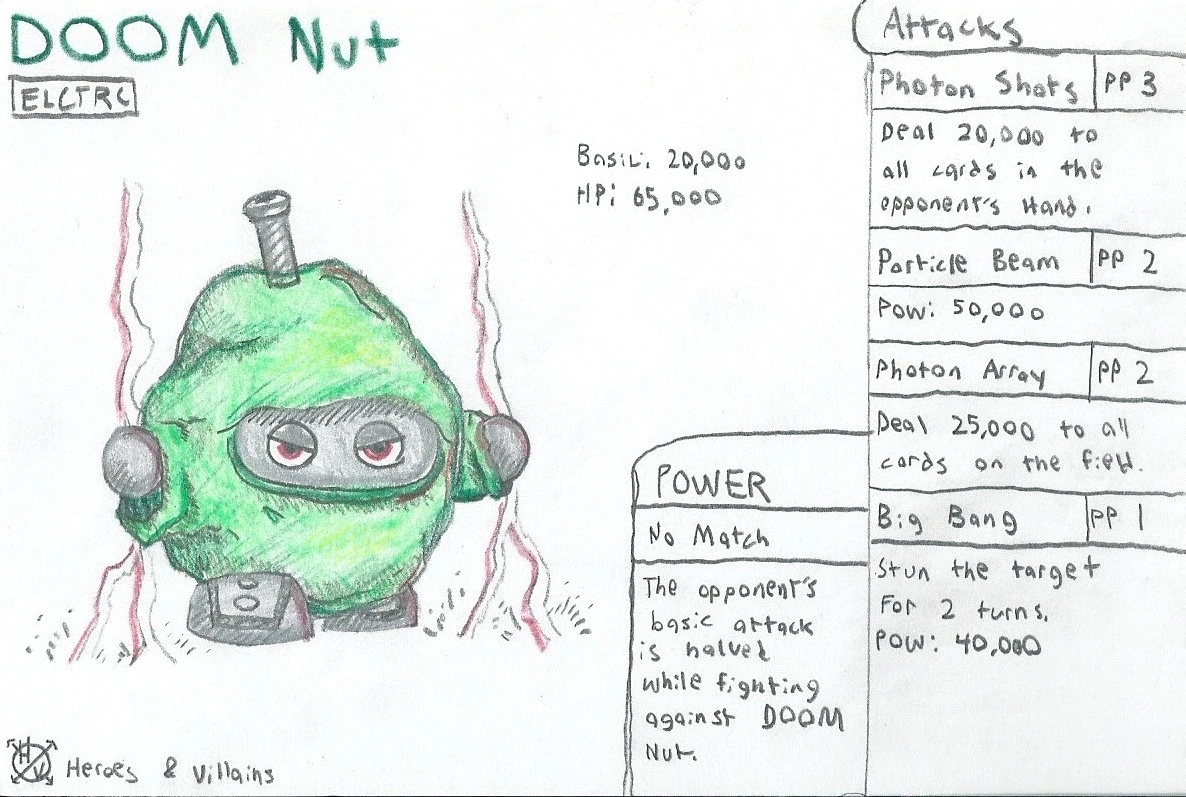 DOOM Nut
ELCTRC
Basic: 20,000
HP: 65,000
Attacks
Photon Shots PP 3
Deal 20,000 to
all cards in the
opponent's Hand.
Particle Beam PP 2
Pow: 50,000
Photon Array PP 2
Deal 25,000 to all
cards on the field.
Big Bang PP 1
Stun the target
For 2 turns.
POW: 40,000
POWER
No Match
The opponent's
basic attack
is halved
while fighting
against DOOM
Nut.
HV Heroes & Villains